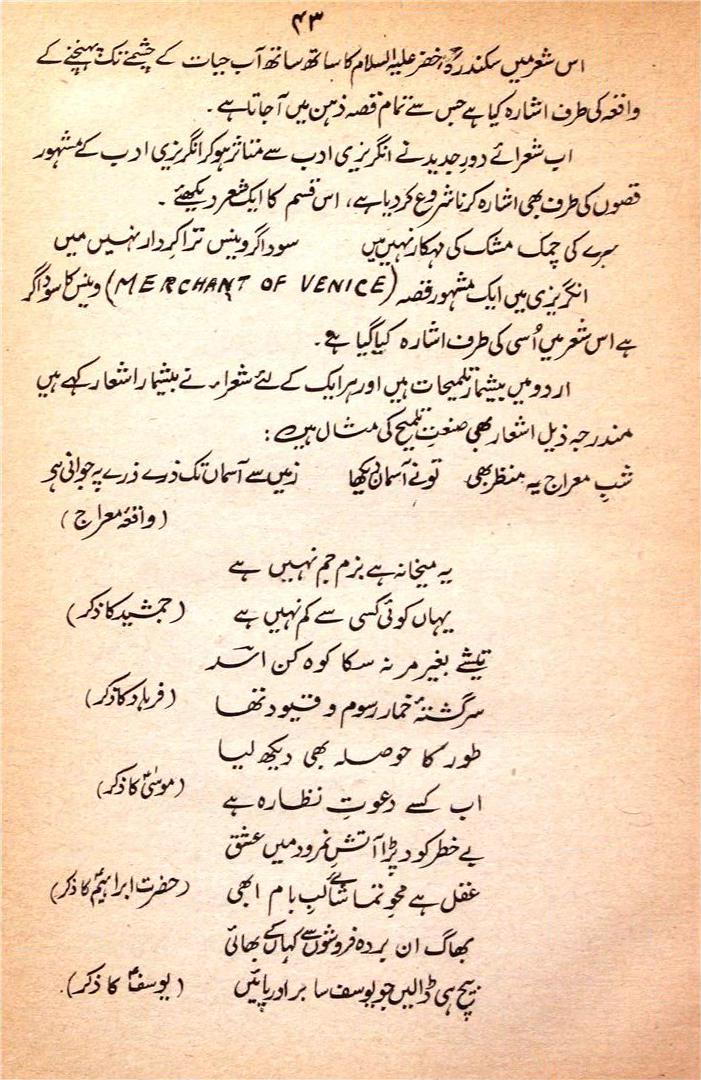 ۴۳
اس شعر میں سکندر اور خضر علیہ السلام کا ساتھ ساتھ آب حیات کے چشمے تک پہنچنے کے
واقعہ کی طرف اشارہ کیا ہے جس سے تمام قصہ ذہن میں آ جاتا ہے۔
اب شعرائے دورِ جدید نے انگریزی ادب سے متاثر ہو کر انگریزی ادب کے مشہور
قصوں کی طرف بھی اشارہ کرنا شروع کر دیا ہے، اس قسم کا ایک شعر دیکھئے۔
ہیرے کی چمک مشک کی مہکار نہیں ہیں سوداگر وینس ترا کردار نہیں میں
انگریزی میں ایک مشہور قصہ (MERCHANT OF VENICE) وینس کا سوداگر
ہے اس شعر میں اُسی کی طرف اشارہ کیا گیا ہے۔
اردو میں بیشمار تلمیحات ہیں اور ہر ایک کے لئے شعراء نے بیشمار اشعار کہے ہیں
مندرجہ ذیل اشعار بھی صنعتِ تلمیح کی مثال ہیں:
شبِ معراج یہ منظر بھی تو نے آسمان دیکھا زمیں سے آسماں تک ذرے ذرے پہ جوانی ہو
(واقعۂ معراج)
یہ میخانہ ہے بزم جم نہیں ہے
یہاں کوئی کسی سے کم نہیں ہے (جمشید کا ذکر)
تیشے بغیر مر نہ سکا کوہ کن اسد
سرگشتۂ خمار رسوم و قیود تھا (فرہاد کا ذکر)
طور کا حوصلہ بھی دیکھ لیا
اب کسے دعوتِ نظارہ ہے (موسیٰؑ کا ذکر)
بے خطر کود پڑا آتشِ نمرود میں عشق
عقل ہے محوِ تماشائے لبِ بام ابھی (حضرت ابراہیمؑ کا ذکر)
بھاگ ان بردہ فروشوں سے کہاں کے بھائی
بیچ ہی ڈالیں جو یوسف سا برادر پائیں (یوسفؑ کا ذکر)۔